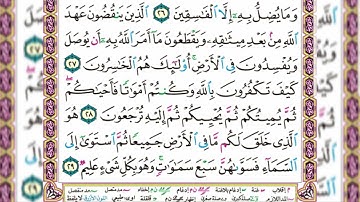 وَمَا يُضِلُّ بِهِۦٓ إِلَّا ٱلْفَـٰسِقِينَ ٢٦ ٱلَّذِينَ يَنقُضُونَ عَهْدَ
ٱللَّهِ مِنۢ بَعْدِ مِيثَـٰقِهِۦ وَيَقْطَعُونَ مَآ أَمَرَ ٱللَّهُ بِهِۦٓ أَن يُوصَلَ
وَيُفْسِدُونَ فِى ٱلْأَرْضِ أُو۟لَـٰٓئِكَ هُمُ ٱلْخَـٰسِرُونَ ٢٧
كَيْفَ تَكْفُرُونَ بِٱللَّهِ وَكُنتُمْ أَمْوَٰتًا فَأَحْيَـٰكُمْ
ثُمَّ يُمِيتُكُمْ ثُمَّ يُحْيِيكُمْ ثُمَّ إِلَيْهِ تُرْجَعُونَ ٢٨ هُوَ
ٱلَّذِى خَلَقَ لَكُم مَّا فِى ٱلْأَرْضِ جَمِيعًا ثُمَّ ٱسْتَوَىٰٓ إِلَى
ٱلسَّمَآءِ فَسَوَّىٰهُنَّ سَبْعَ سَمَـٰوَٰتٍ وَهُوَ بِكُلِّ شَىْءٍ عَلِيمٌ ٢٩